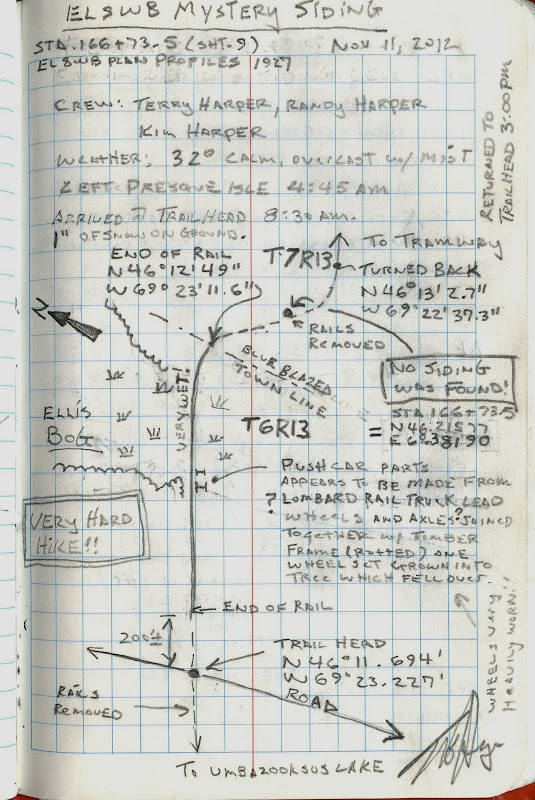 EL&WB MYSTERY SIDING
STA. 166+73.5 (SHT-9)
NOV 11, 2012
EL&WB PLAN PROFILES 1927
CREW: TERRY HARPER, RANDY HARPER
KIM HARPER
WEATHER; 32° CALM, OVERCAST W/ MIST
LEFT PRESQUE ISLE 4:45 AM
ARRIVED @ TRAIL HEAD 8:30 AM.
1" OF SNOW ON GROUND.
RETURNED TO
TRAILHEAD 3:00PM
END OF RAIL
N 46° 12' 49"
W 69° 23' 11.6"
T7R13
TO TRAMWAY
TURNED BACK
N 46° 13' 2.7"
W 69° 22' 37.3"
RAILS
REMOVED
N
BLUE BLAZED
TOWN LINE
NO SIDING
WAS FOUND!
STA 166+73.5
= N46.21577
E 69.38190
T6R13
VERY WET!
ELLIS
BOG
PUSHCAR PARTS
APPEARS TO BE MADE FROM
? LOMBARD RAIL TRUCK LEAD
WHEELS AND AXLES? JOINED
TOGETHER W/ TIMBER
FRAME (ROTTED) ONE
WHEEL SET GROWN INTO
TREE WHICH FELL OVER.
WHEELS VERY
HEAVILY WORN!!
VERY HARD
HIKE!!
END OF RAIL
200±
TRAIL HEAD
N 46° 11.694'
W 69° 23.227'
ROAD
RAILS
REMOVED
TO UMBAZOOKSUS LAKE